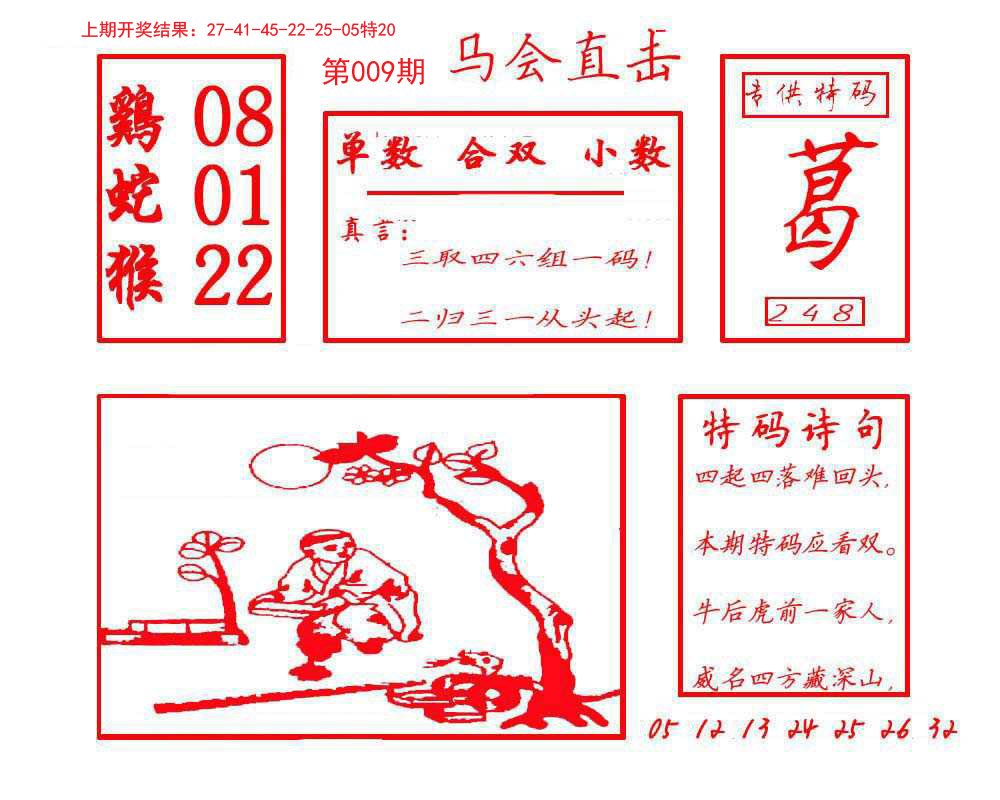 上期开奖结果：27-41-45-22-25-05特20
第009期 马会直击
鷄 08
蛇 01
猴 22
单数 合双 小数
真言：
三取四六组一码！
二归三一从头起！
专供特码
葛
248
特码诗句
四起四落难回头，
本期特码应看双。
牛后虎前一家人，
威名四方藏深山，
05 12 13 24 25 26 32